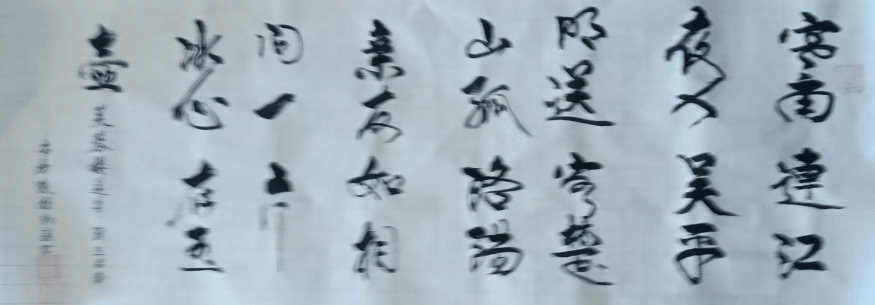 寒雨連江
夜入吴平
明送客楚
山孤洛陽
亲友如相
问一片
冰心在玉
壶
芙蓉楼送辛